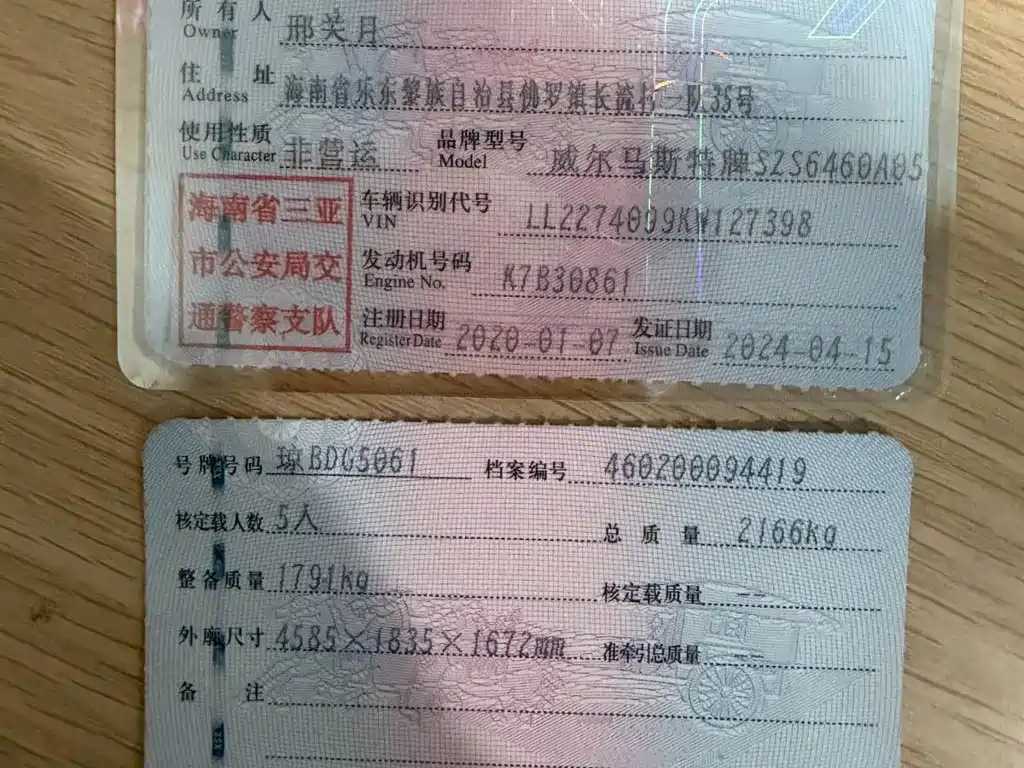 所有人 邢关月
Owner
住址 海南省乐东黎族自治县佛罗镇长流村三队35号
Address
使用性质 非营运 品牌型号 威尔马斯特牌SZS6460A05
Use Character Model
海南省三亚
市公安局交
通警察支队
车辆识别代号 LL2274009KW127398
VIN
发动机号码 K7B30861
Engine No.
注册日期 2020-01-07 发证日期 2024-04-15
Register Date Issue Date
号牌号码 琼BDG5061 档案编号 460200094419
核定载人数 5人 总质量 2166kg
整备质量 1791kg 核定载质量 --
外廓尺寸 4585×1835×1672mm 准牵引总质量 --
备注